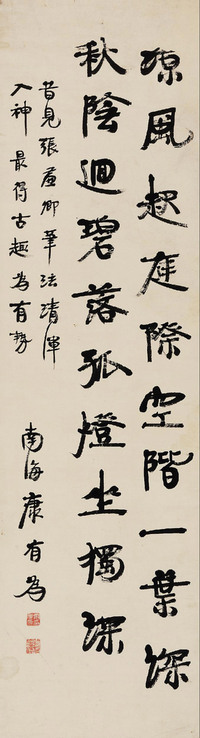 涼風起庭際空階一葉深
秋陰迴碧落孤燈坐獨深
昔見張廉卿筆法清渾
入神最得古趣為有勢
南海康有為